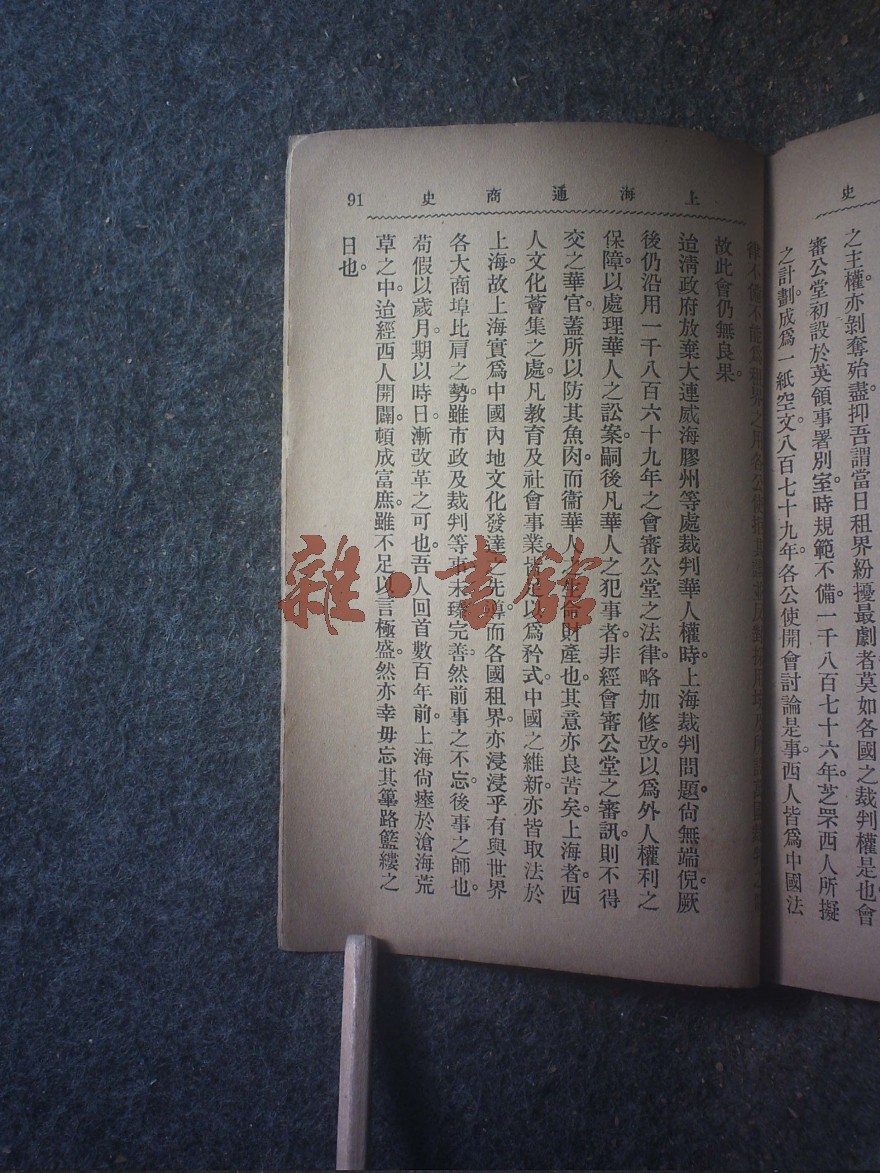 史
之主權。亦剝奪殆盡。抑吾謂當日租界紛擾最劇者。莫如各國之裁判權是也。會
審公堂初設於英領事署別室。時規範不備。一千八百七十六年。芝罘西人所擬
之計劃。成爲一紙空文。八百七十九年。各公使開會討論是事。西人皆爲中國法
上海通商史
91
律不備不能爲租界之用各公使
故此會仍無良果。
迨淸政府放棄大連威海膠州等處裁判華人權時。上海裁判問題。尙無端倪。厥
後仍沿用一千八百六十九年之會審公堂之法律。略加修改。以爲外人權利之
保障。以處理華人之訟案。嗣後凡華人之犯事者。非經會審公堂之審訊。則不得
交之華官。蓋所以防其魚肉。而衞華人之生命財產也。其意亦良苦矣。上海者。西
人文化薈集之處。凡敎育及社會事業。以爲矜式。中國之維新。亦皆取法於
上海。故上海實爲中國內地文化發達之先導。而各國租界。亦浸浸乎有與世界
各大商埠比肩之勢。雖市政及裁判等事未臻完善。然前事之不忘。後事之師也。
苟假以歲月。期以時日。漸改革之可也。吾人回首數百年前。上海尙瘞於滄海荒
草之中。迨經西人開闢。頓成富庶。雖不足以言極盛。然亦幸毋忘其篳路籃縷之
日也。
雜·書館